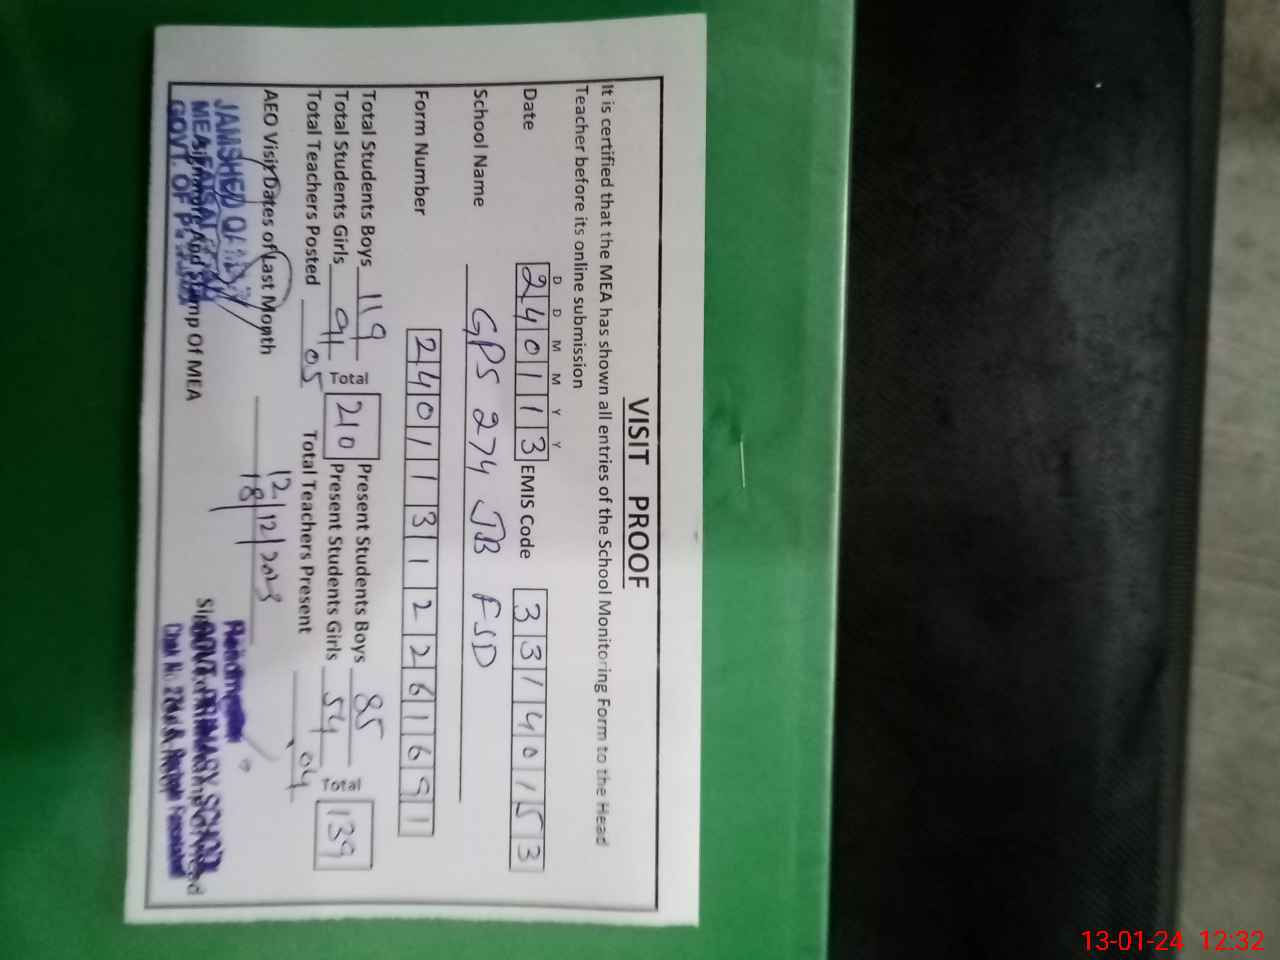 VISIT PROOF
It is certified that the MEA has shown all entries of the School Monitoring Form to the Head
Teacher before its online submission
D D M M Y Y
Date 240113 EMIS Code 33140153
School Name GPS 274 JB FSD
Form Number 24011312261691
Total Students Boys 119 Total 210 Present Students Boys 85 Total 139
Total Students Girls 91 Present Students Girls 54
Total Teachers Posted 05 Total Teachers Present 04
AEO Visit Dates of Last Month 12/12/2023
18
JAMSHED
MEA
GOVT. OF
Signature And Stamp Of MEA
GOVT. PRIMARY SCHOOL
Chak No. 274
13-01-24 12:32